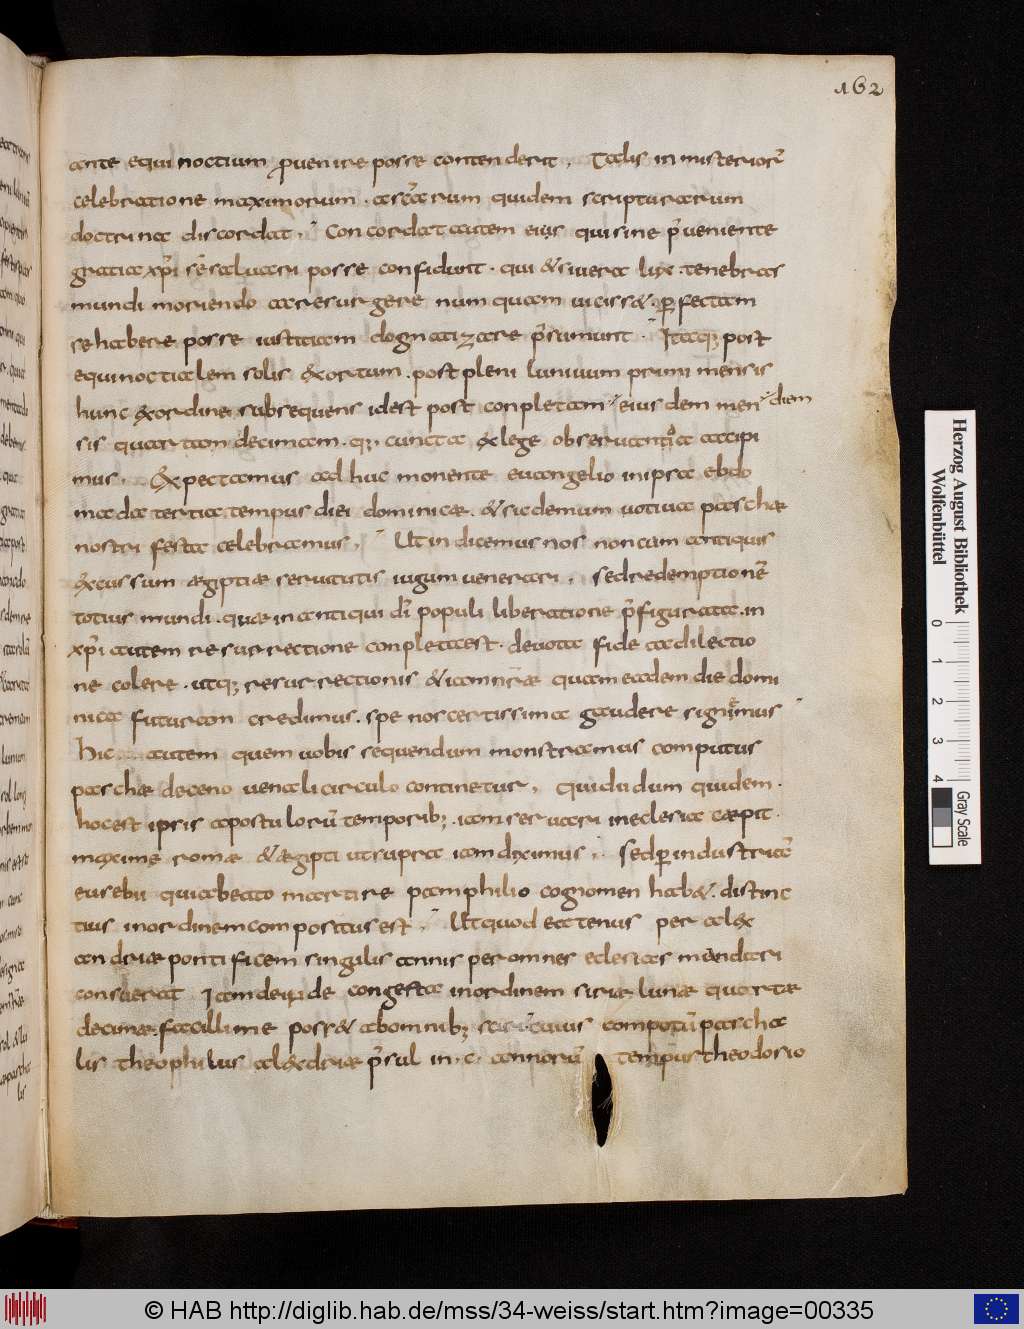 162
ante equinoctium p̄uenire posse contenderit. Talis in misterioꝝ
celebratione maximorum. ascārum quidem scripturarum
doctrina discordat. Concordat autem eius qui sine p̄ueniente
gratia xp̄i sē saluari posse confidunt. qui &siuera lux. tenebras
mundi moriendo ac resurgere numquam uiciss& ꝑfectam
se habere posse iustitiam dogmatizare p̄sumunt. Itaq; post
equinoctialem solis exortum. post pleni lunium primi mensis
hunc exordine subsequens idest post conpletam eiusdem men diem
sis quartam decimam. q; cuncta ex lege obseruanda accipi
mus. Expectamus adhuc monente euangelio in ipsa ebdo
mada tertia tempus diei dominicæ. & sic demum uotiua paschæ
nostri festa celebramus. Ut indicemus nos non cum antiquis
excussum ægiptiæ seruitutis iugum uenerari. sed redemptionē
totius mundi. quæ in antiqui dī populi liberatione p̄figurata. in
xp̄i autem resurrectione conpleta est. deuota fide ac dilectio
ne colere. utq; resurrectionis &iam nr̄æ quam eadem die domi
nica futuram credimus. spe nos certissima gaudere signemus
Hic autem quem uobis sequendum monstramus computus
paschæ decenouenali circulo continetur. qui dudum quidem.
hoc est ipsis apostulorū temporib; iam seruari in eclesia cæpit.
maxime romæ & ægipti ut supra iam diximus. sed ꝑ industriā
eusebii qui a beato martire pamphilio cognomen hab&. distinc
tius in ordinem compositus est. Ut quod eatenus per alex
andriæ pontificem singulis annis per omnes eclesias mandari
consuerat Iam deinde congesta in ordinem seriæ lunæ quartæ
decimæ. facillime poss& ab omnib; sciri. cuius compotū pascha
lis theophilus alexdriæ p̄sul in. c. annorū tempus theodosio
Herzog August Bibliothek
Wolfenbüttel
0 1 2 3 4
Gray Scale
© HAB http://diglib.hab.de/mss/34-weiss/start.htm?image=00335